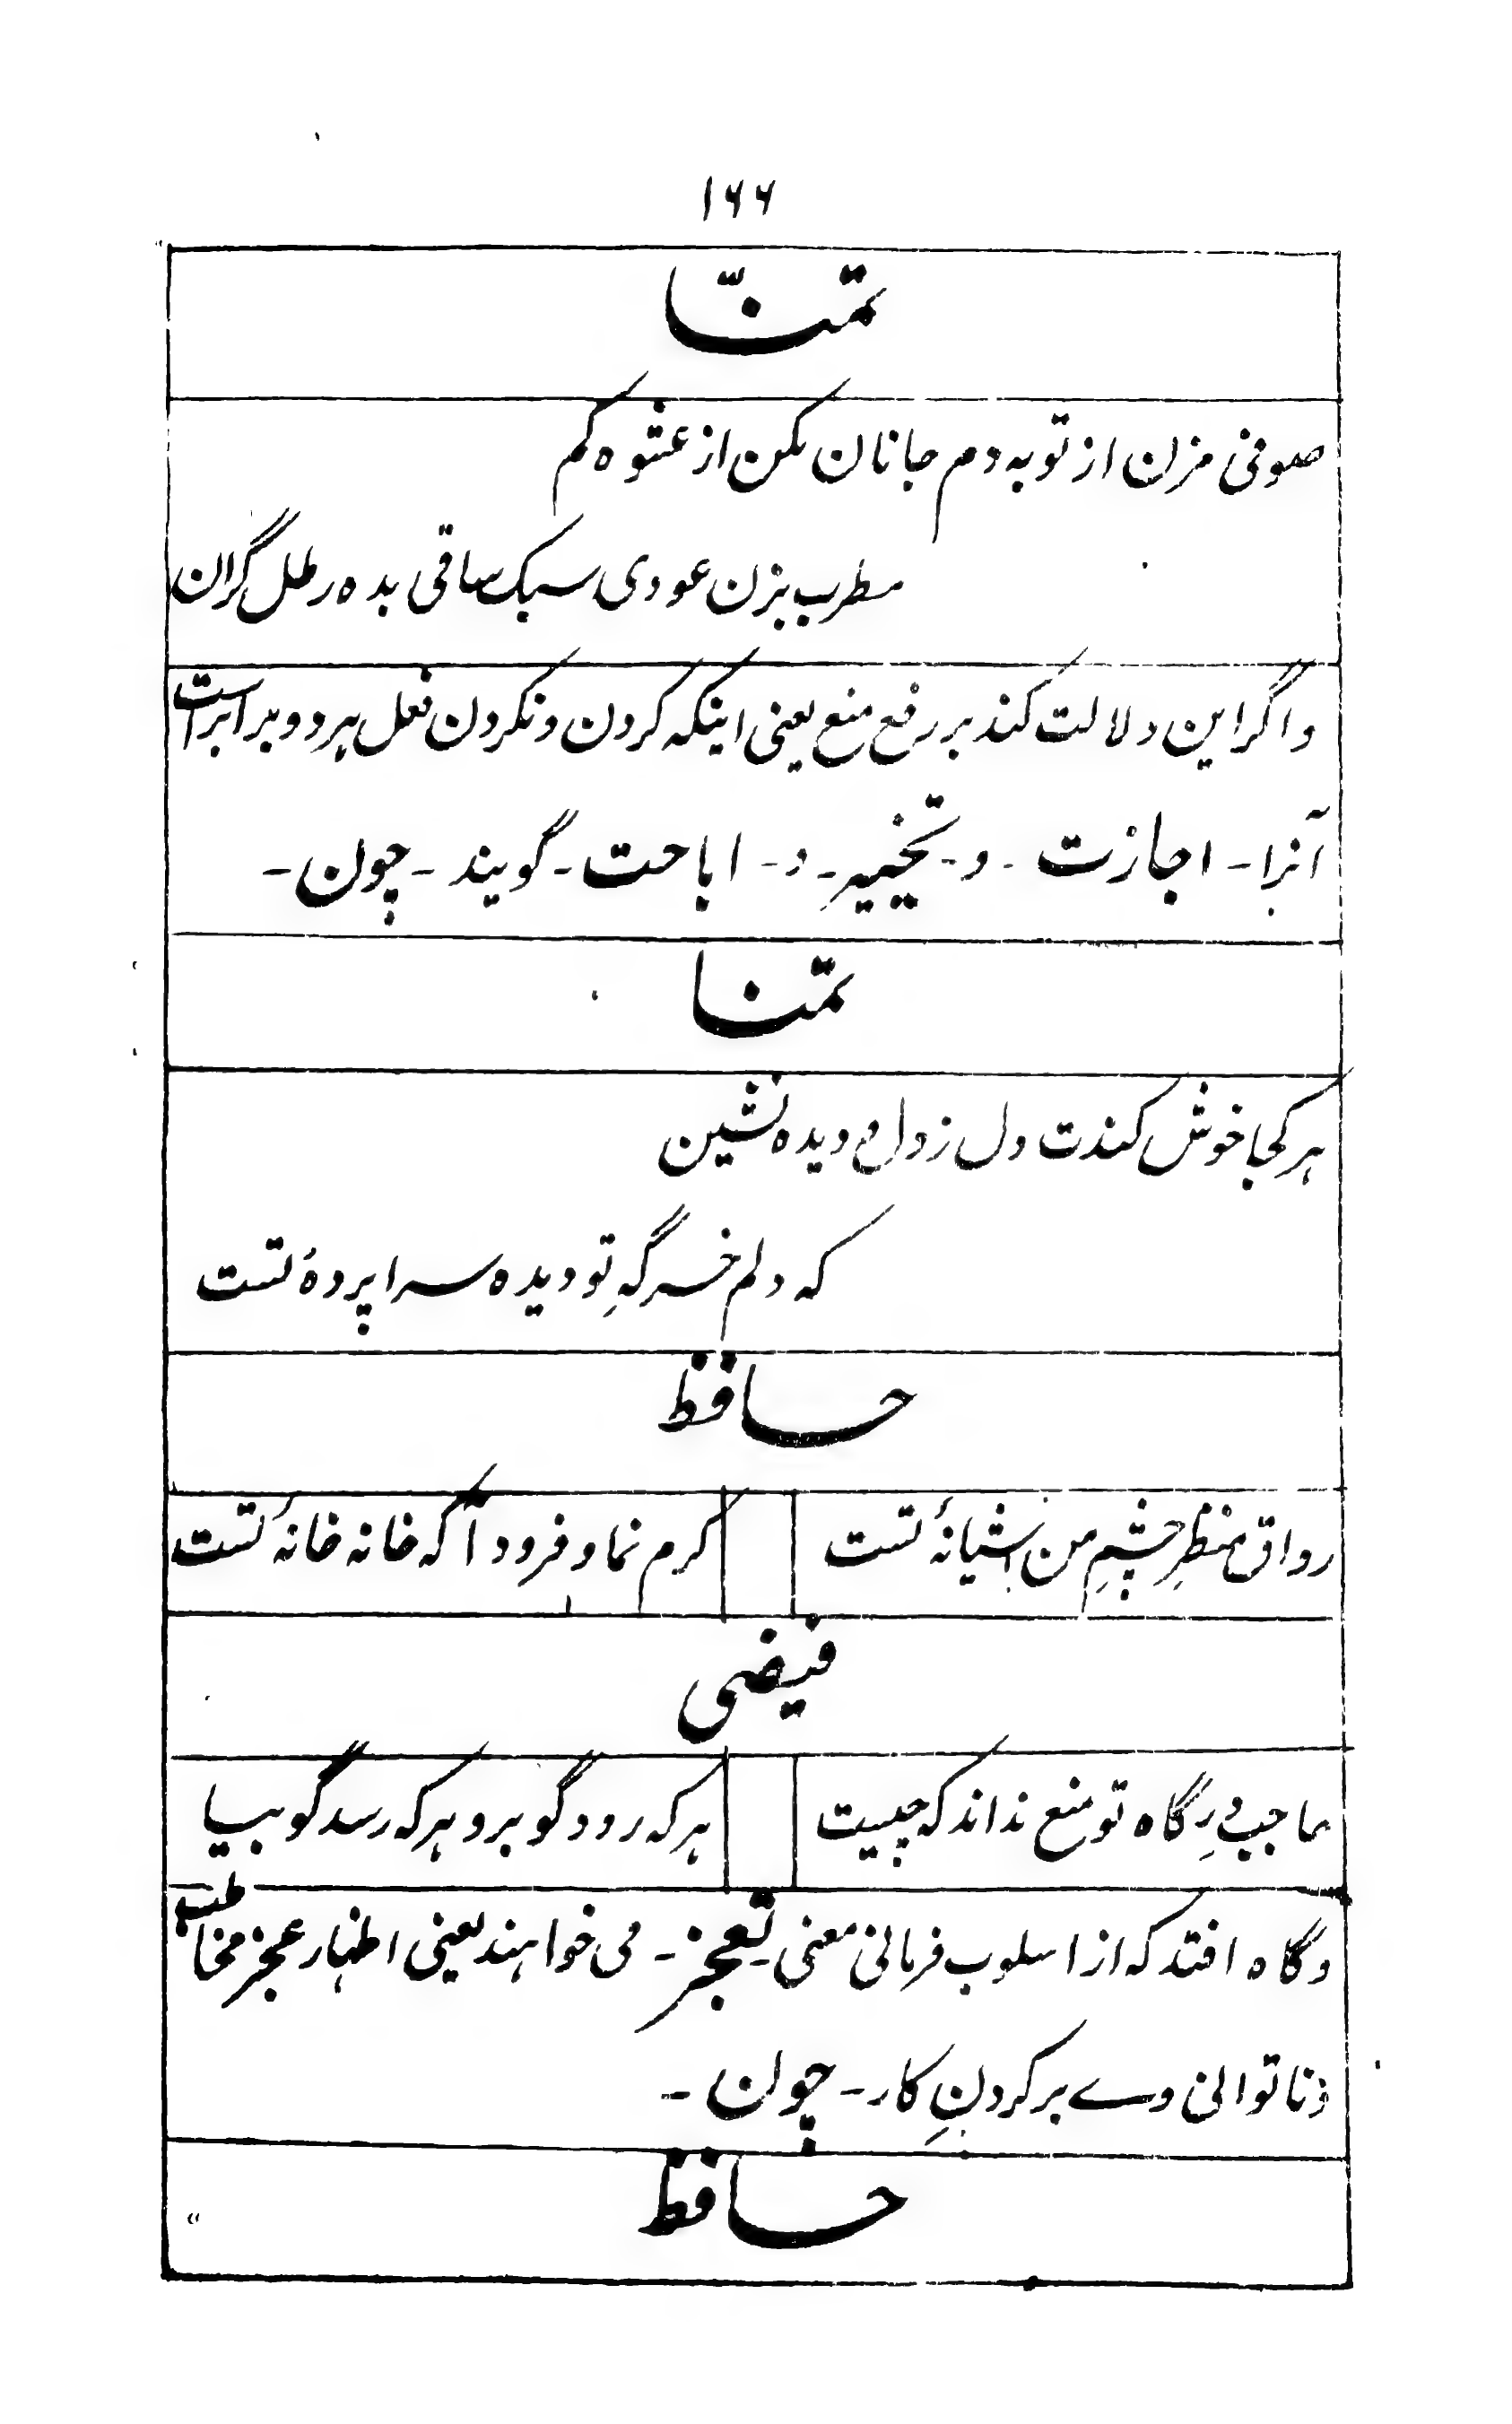 ۱۶۶
تمنّا
صوفی مزن از توبه دم جانان مکن از عشوه کم
مطرب بزن عودی سبک ساقی بده رطل گران
و اگر این دلالت کند بر رفع منع یعنی اینکه کردن و نکردن فعل هر دو برابر است
آنرا - اجازت - و - تخییر - و - اباحت - گویند - چون -
تمنا
هر کجا خوش کندت دل ز دل و دیده نشین
که دلم خرگهِ تو دیده سراپردهٔ تست
حافظ
رواق منظرِ چشمِ من آشیانهٔ تست
کرم نما و فرود آ که خانه خانهٔ تست
فیضی
حاجبِ درِگاه تو منع نداند که چیست
هر که رود گو برو هر که رسد گو بیا
و گاه افتد که از اسلوب فرمانی معنی - تعجز - می خواهند یعنی اظهار عجز مخاطب
و ناتوانی وے بر کردنِ کار - چون -
حافظ